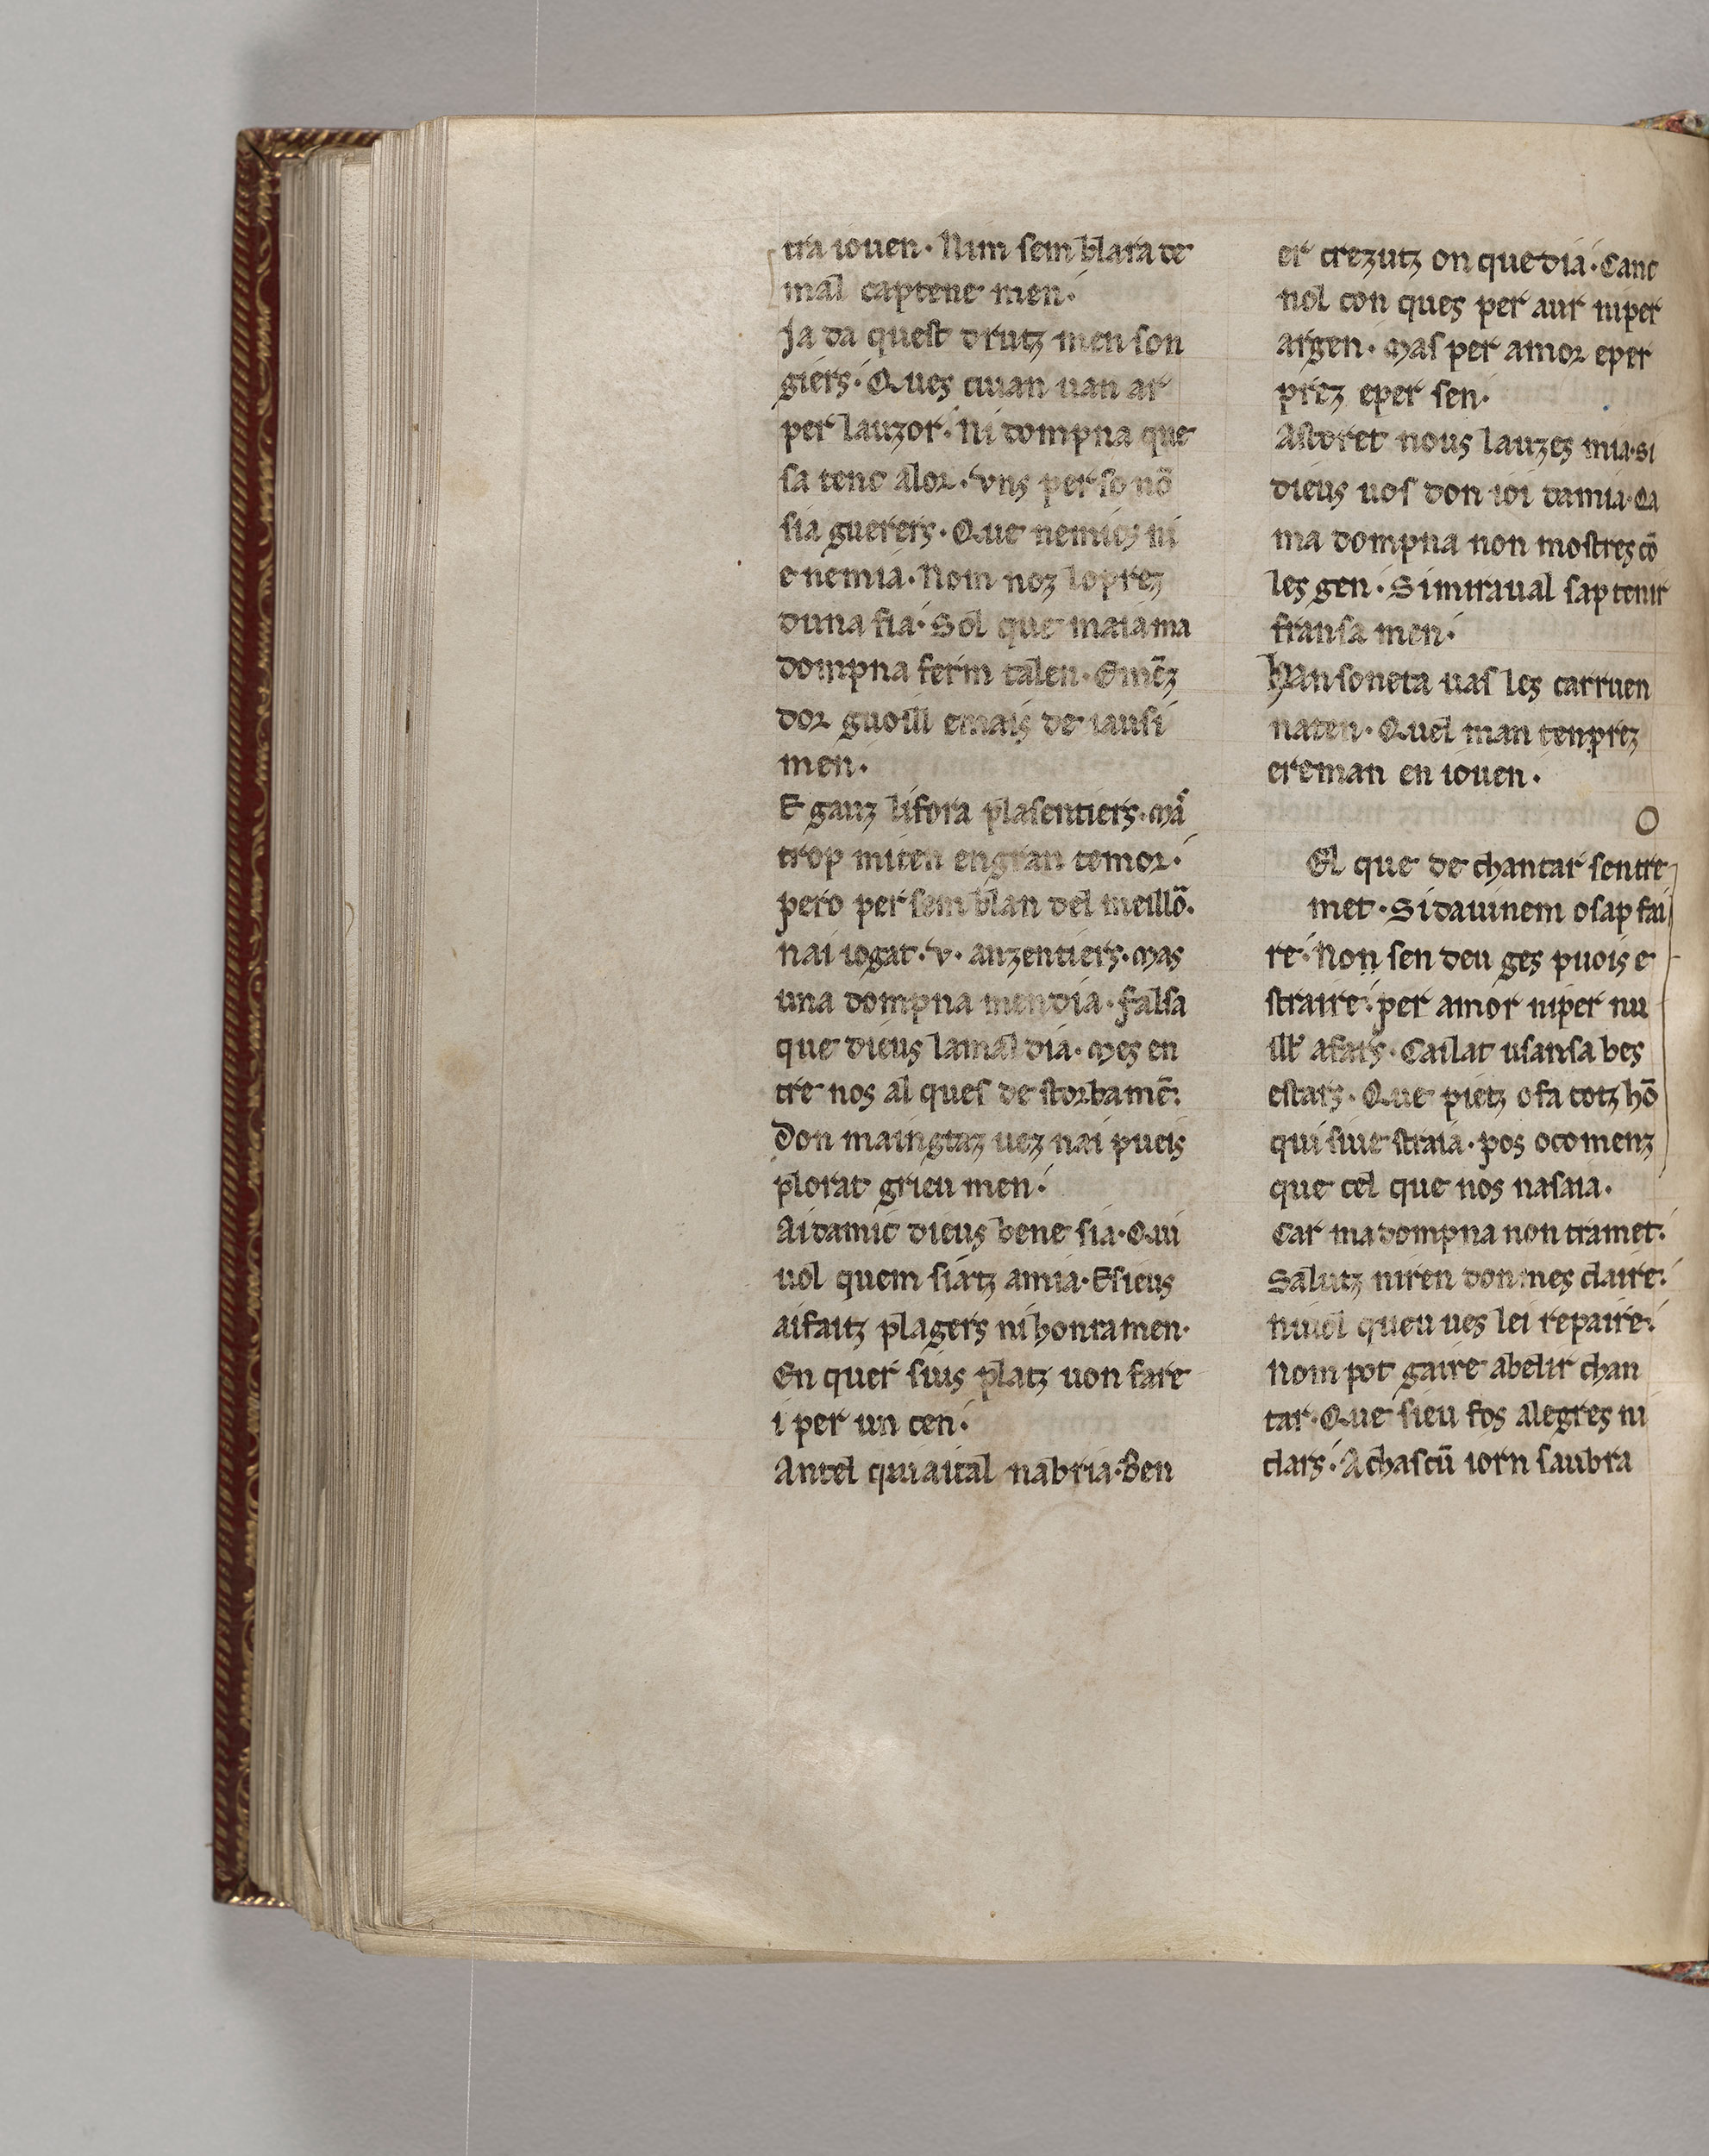 tra iouen · Nim sem blara te
mal captene men ·
Ja da quest drutz men son
giers · Ques cuian uan ar
per lauzor · Ni dompna que
sa tenc alor · vns per so nō
sia guerers · Que nemics ni
e nemia · Nom noz lo prez
duna fia · Sol que maia ma
dompna ferm talen · E mēz
dor guoill e mais de iausi
men ·
E gauz li fora plasentiers · ma
trop mi ten en gran temor ·
pero per sem blan del meillō.
nai iogat · v · auzentiers · mas
una dompna mendia · falsa
que dieus lamal dia · mes en
tre nos al ques de storbamē:
Don maingtaz uez nai pueis
plorat grieu men ·
Ai damic dieus bene sia · Qui
uol quem siatz amia · E sieus
ai faitz plagers ni honramen ·
En quer sius platz uon fare
i per un cen ·
Antel qui aital nabria · Ben
er crezutz on que dia · Canc
nol con ques per aur ni per
argen · mas per amor e per
prez e per sen ·
Astoret nous lauzes mia · si
dieus uos don ioi damia · Ca
ma dompna non mostres cō
les gen · Si miraual sap tenir
fransa men ·
han soneta uas les carruen
naten · Quel man ten prez
e reman en iouen ·
o
El que de chantar sentre
met · Si dauinem o sap fai
re · Non sen deu ges puois e
straire · per amor ni per nu
ill afars · Cailat usansa bes
estars · Que pietz o fa totz hō
qui siue straia · pos o comenz
que cel que nos nasaia ·
Car ma dompna non tramet ·
Salutz ni ren don mes claire ·
ni uol queu ues lei repaire ·
Nom pot gaire abelir chan
tar · Que sieu fos alegres ni
clars · A chascū iorn saubra